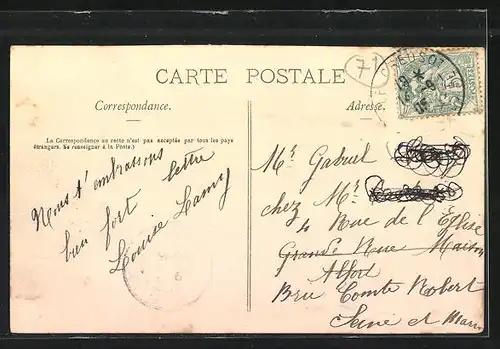 CARTE POSTALE
Correspondance.
Adresse.
La Correspondance au recto n'est pas acceptée par tous les pays
étrangers. Se renseigner à la Poste.)
71
Nous t'embrassons
bien fort lettre
Louise Lamy
Mr Gabriel
chez Mr
4 Rue de l'Eglise
Grande Rue Maison
Alfort
Brie Comte Robert
Seine et Marne